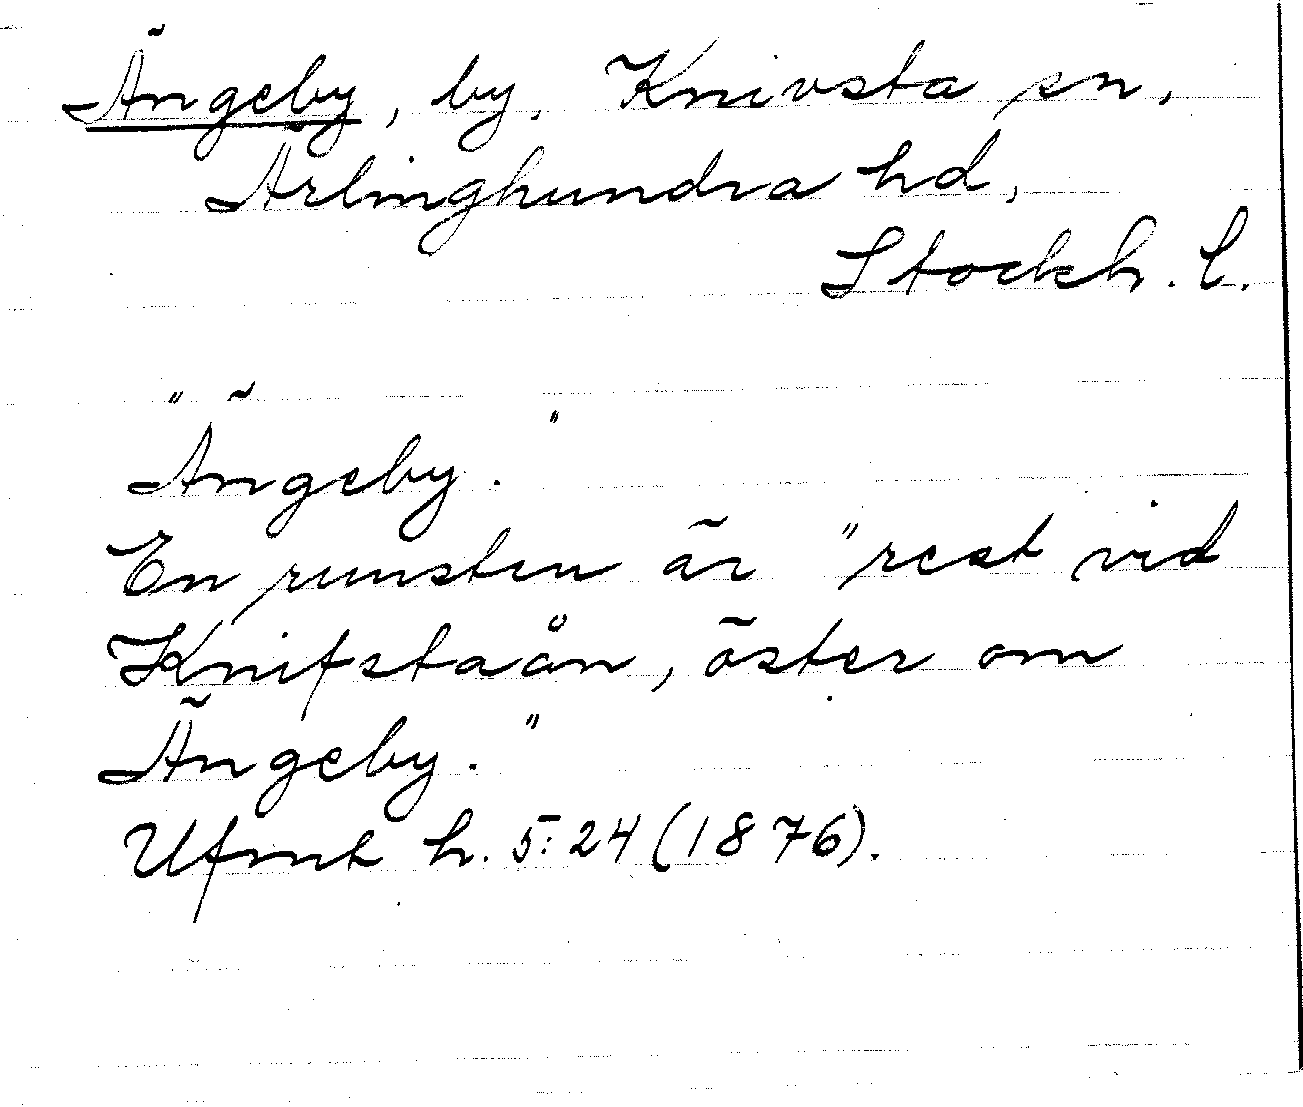 Ängeby, by, Knivsta sn,
Ärlinghundra hd,
Stockh. l.
"Ängeby."
En runsten är "rest vid
Knifstaån, öster om
Ängeby."
Ufmt h. 5:24 (1876).